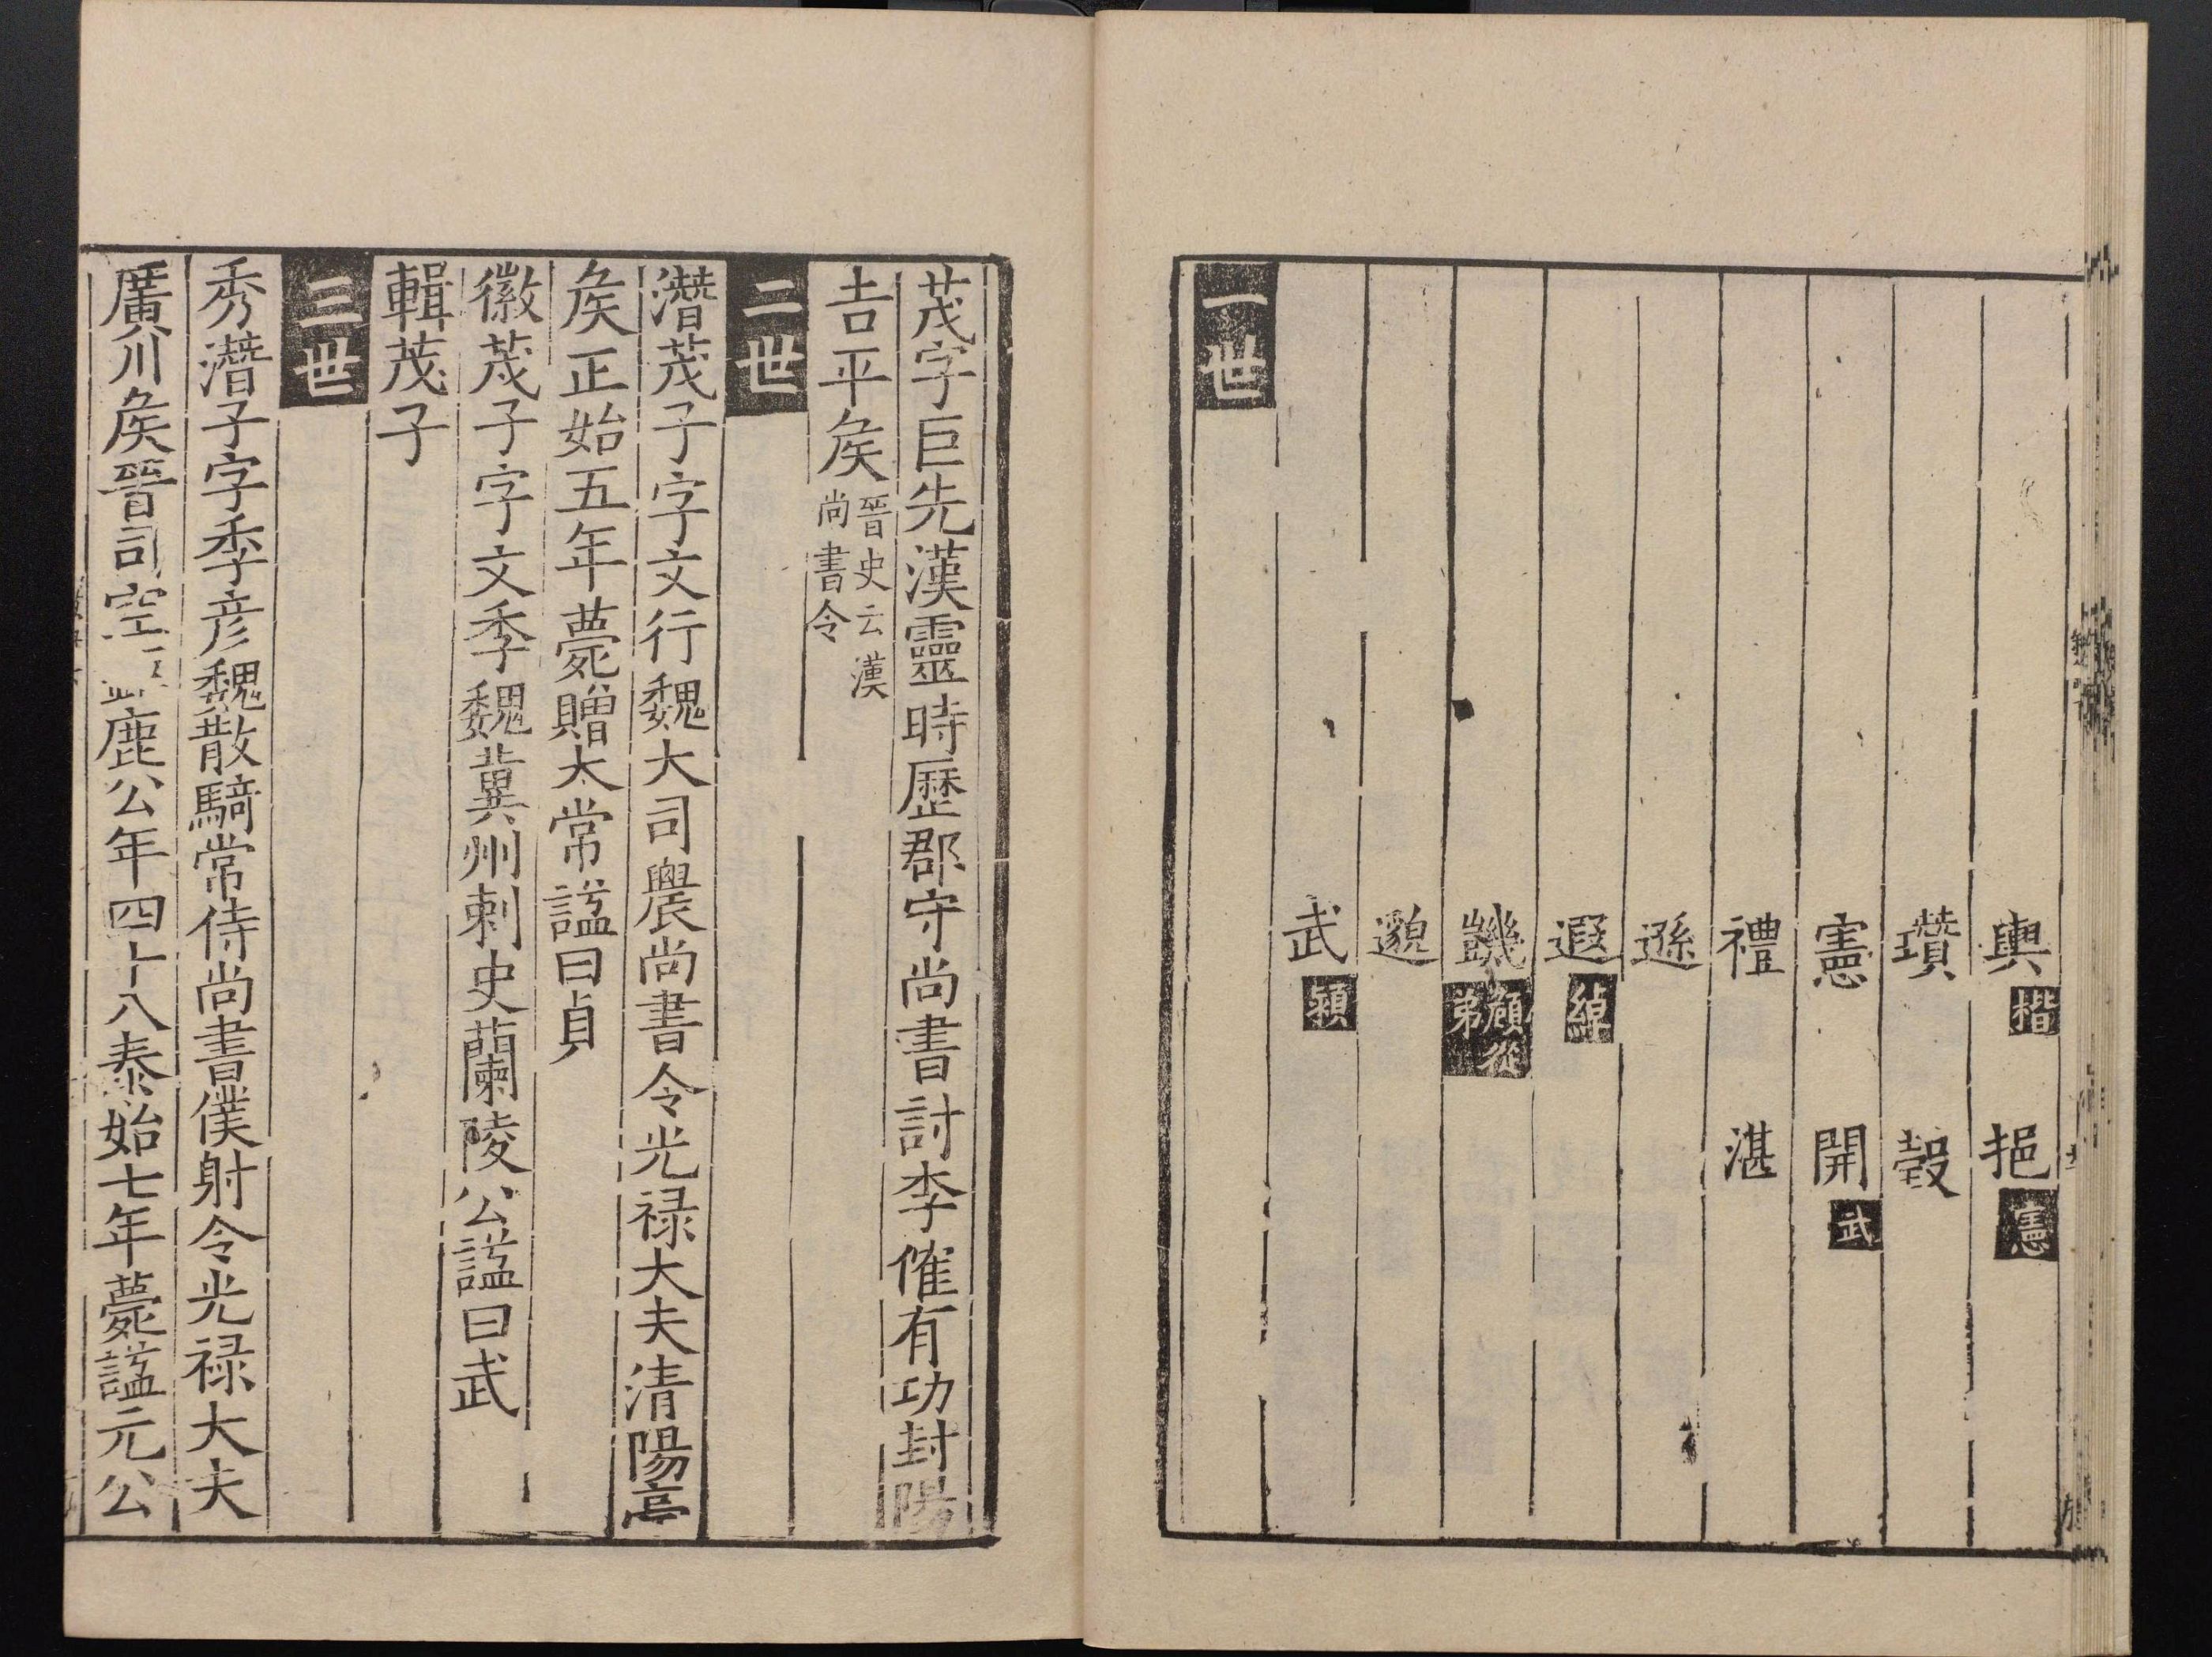 輿楷　挹憲
瓚　瑴
憲　開武
禮　湛
遜
遐綽
譏顧從弟
邈
武穎
一世
茂字巨先漢靈時歷郡守尚書討李傕有功封陽
吉平矦晉史云漢尚書令
二世
濳茂子字文行魏大司農尚書令光禄大夫清陽亭
矦正始五年薨贈太常謚曰貞
徽茂子字文季魏冀州刺史蘭陵公謚曰武
輯茂子
三世
秀濳子字季彦魏散騎常侍尚書僕射令光禄大夫
廣川矦晉司空鹿公年四十八泰始七年薨謚元公